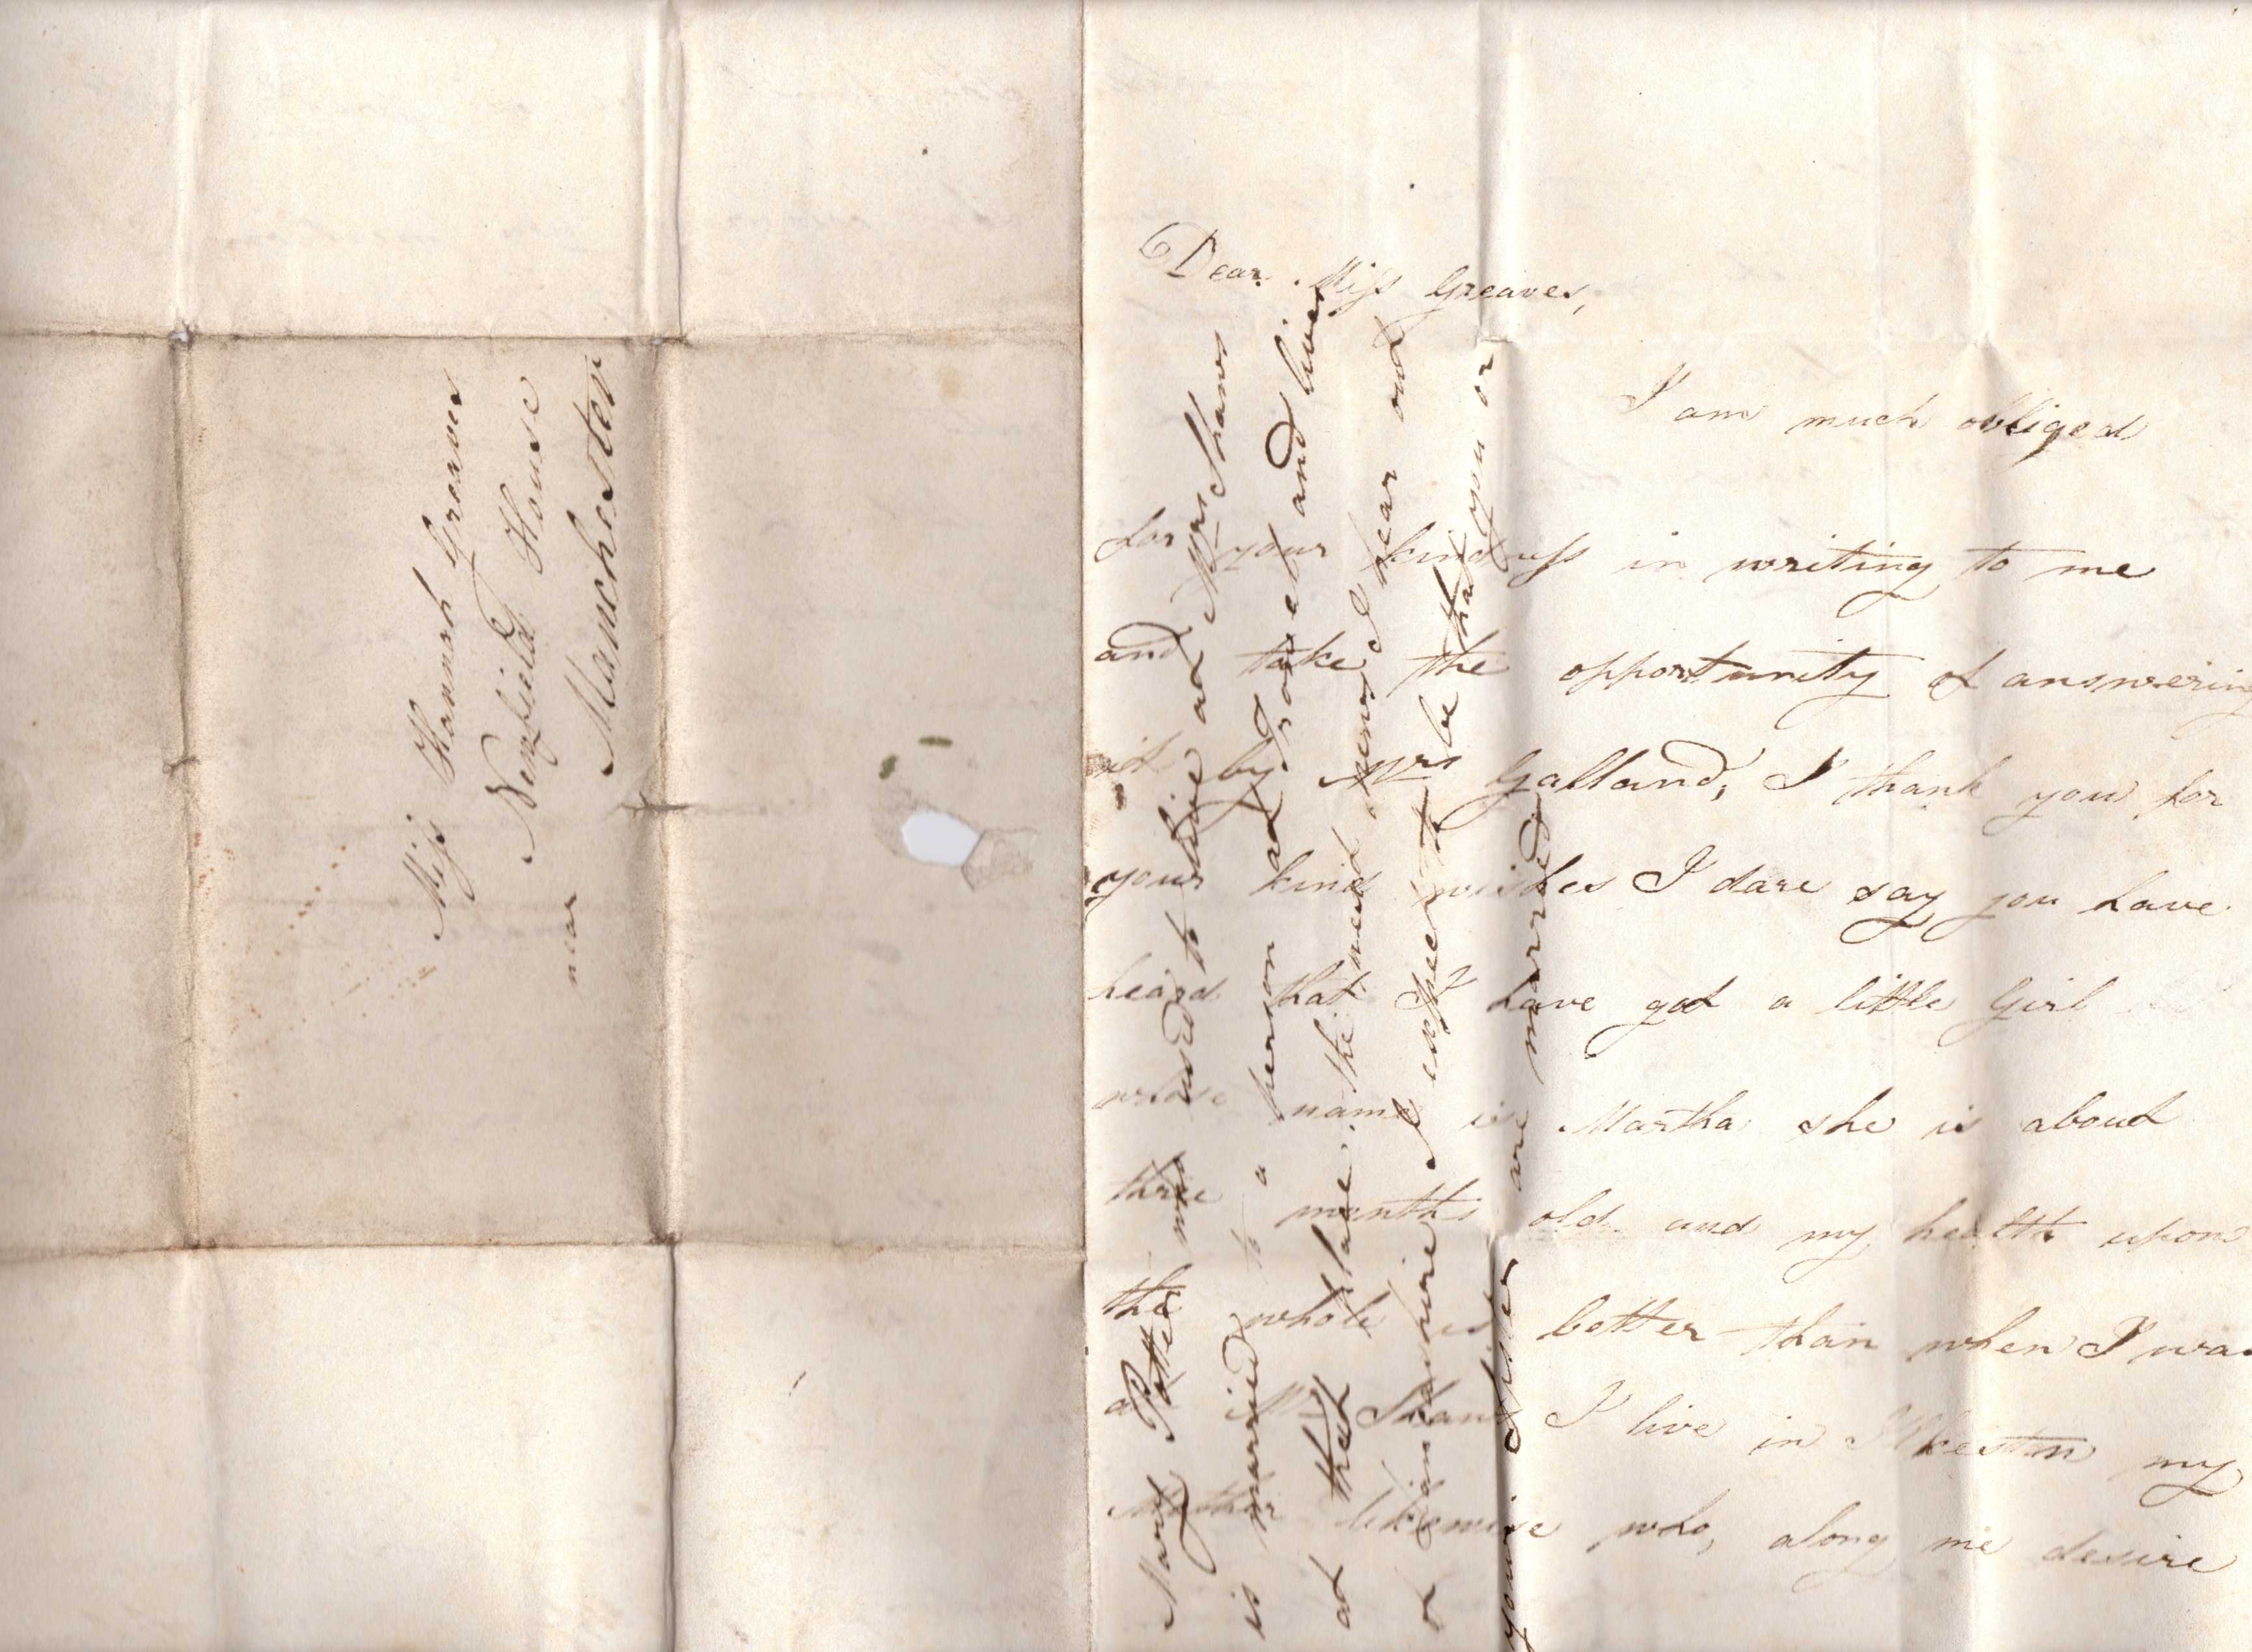 Miss Hannah Greaves
Newfield House
near Manchester
Dear Miss Greaves,
I am much obliged
for your kindness in writing to me
and take the opportunity of answering
it by Mrs Galland, I thank you for
your kind wishes I dare say you have
heard that I have got a little Girl
whose name is Martha she is about
three months old and my health upon
the whole is better than when I was
at Mr Shaws I live in Ilkeston my
Mother likewise who, along me desire
Mary Potter who used to live at Mrs Shaws
is married to a person at and lives
at that place. the next news I hear out
of Lancashire I expect to be that you or
your Sister are married